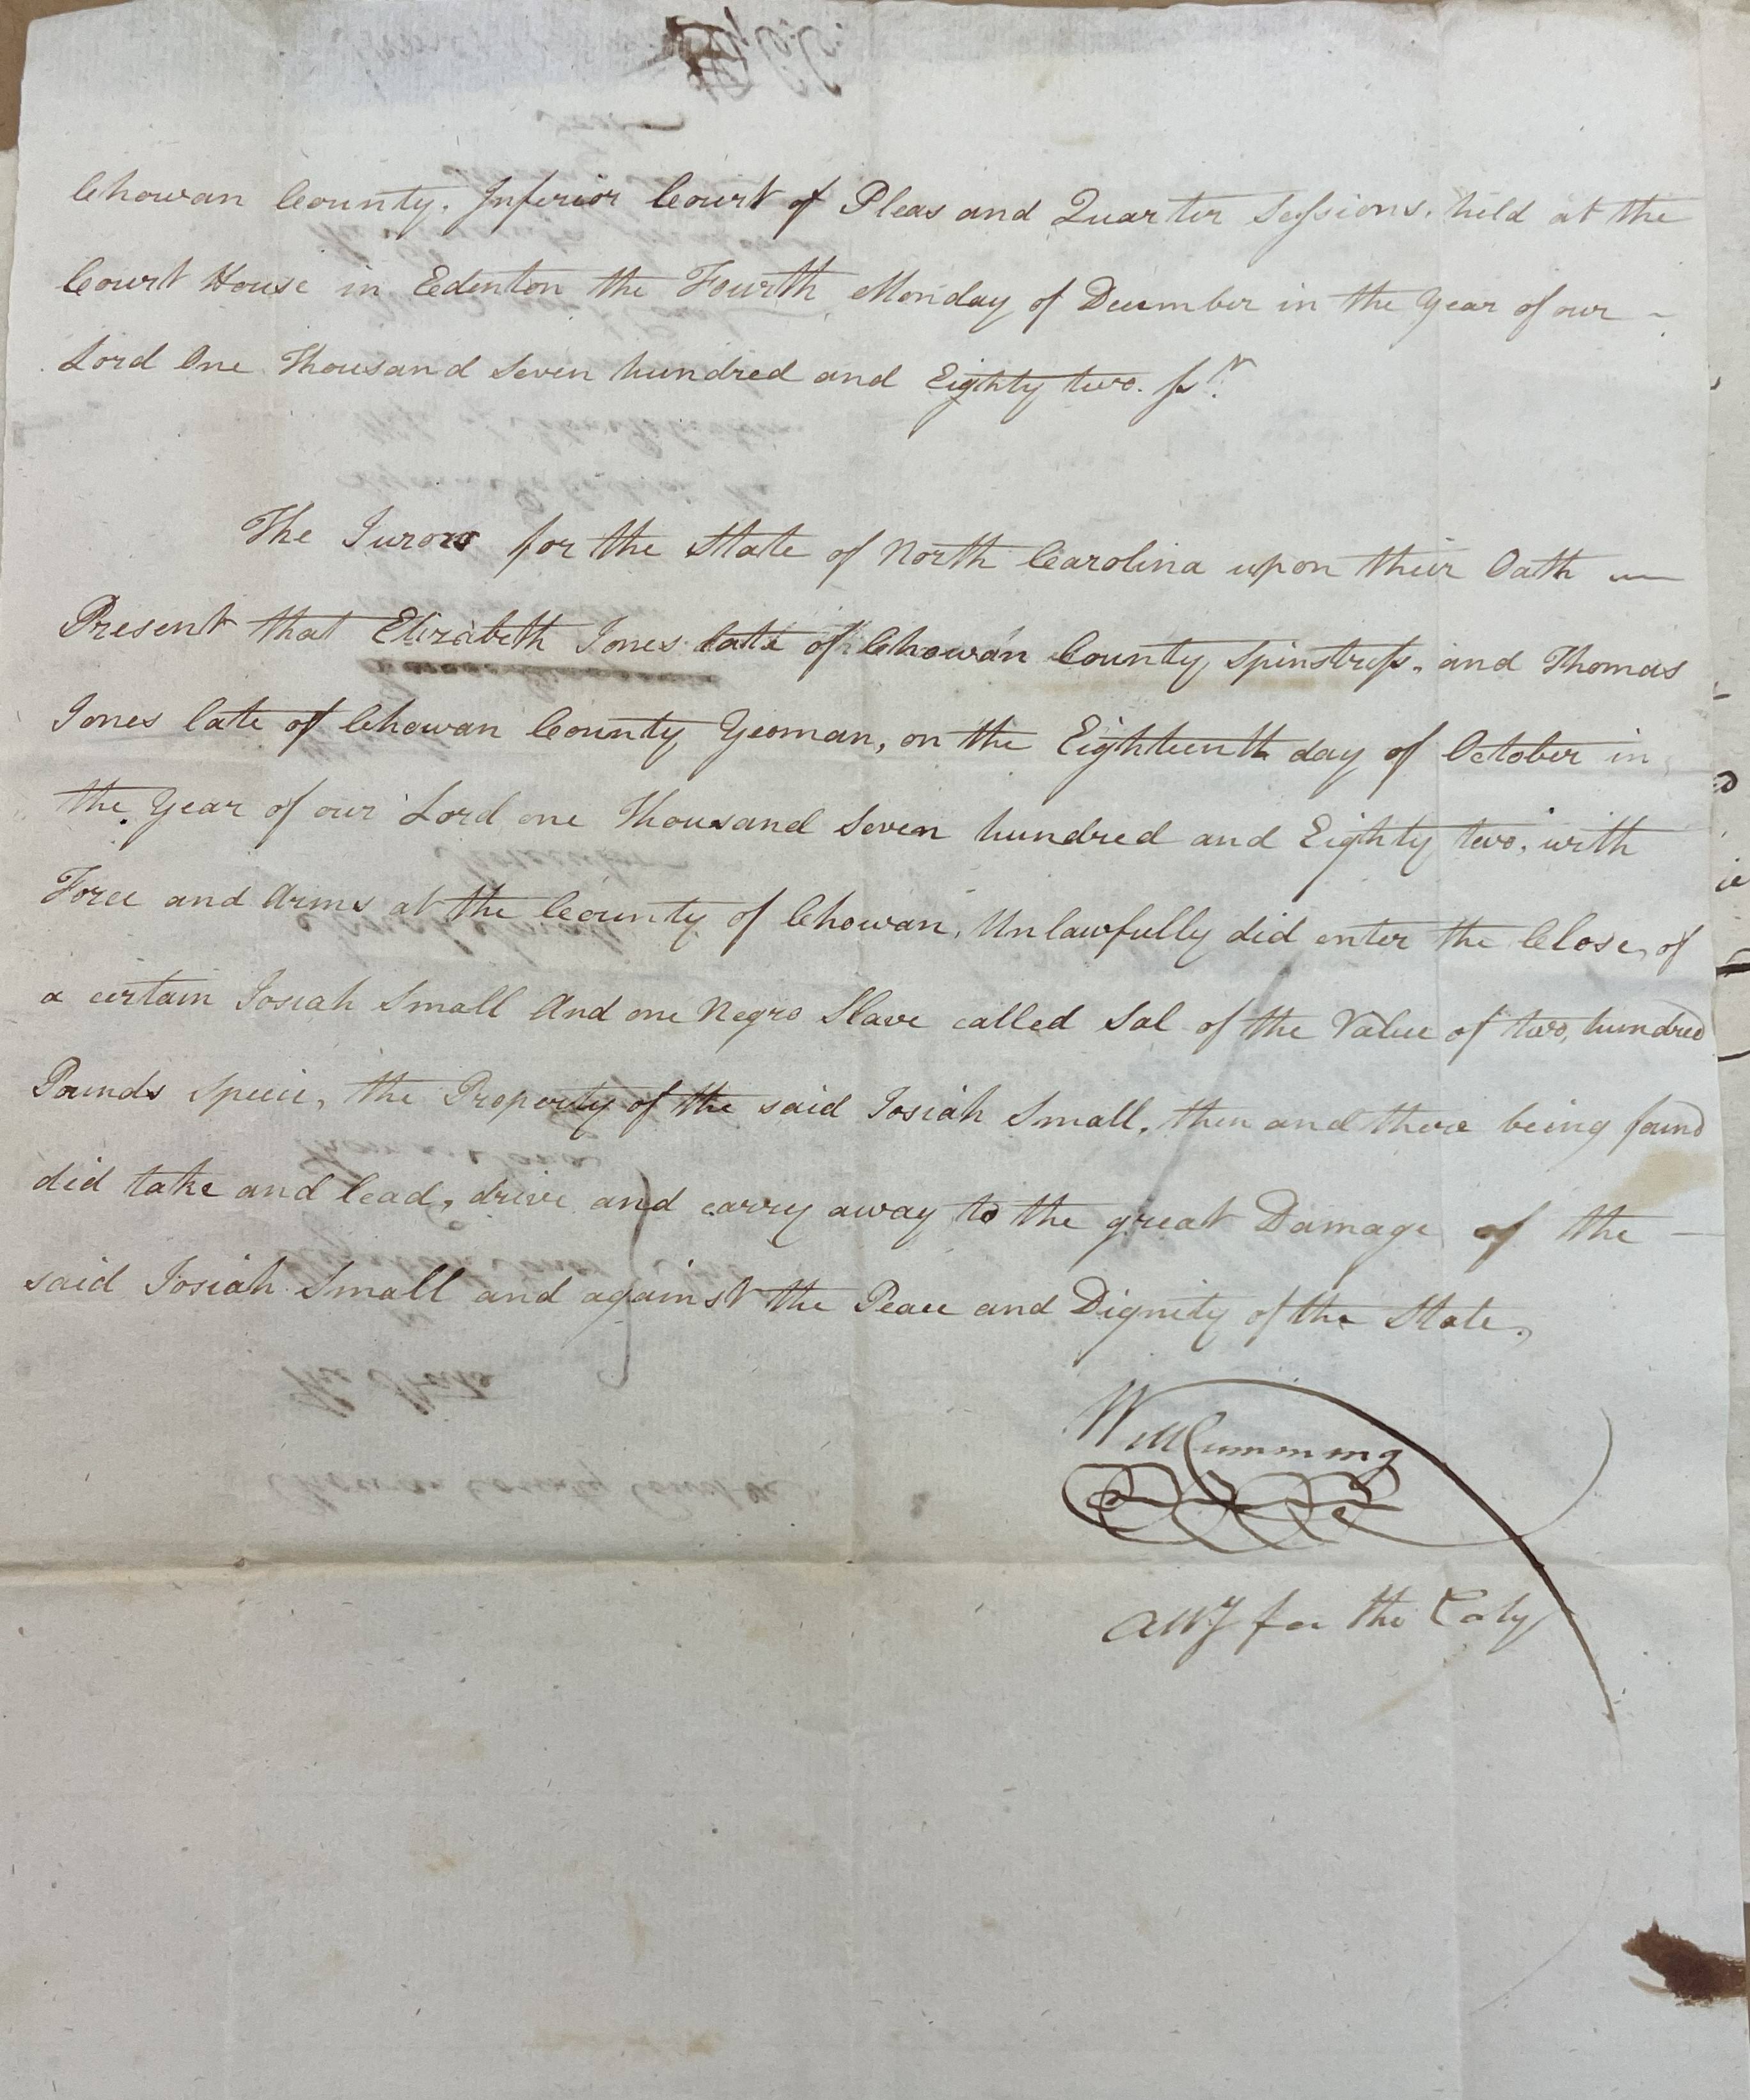 Chowan County. Inferior Court of Pleas and Quarter Sessions. held at the
Court House in Edenton the Fourth Monday of December in the Year of our -
Lord One Thousand Seven hundred and Eighty two.
The Jurors for the State of North Carolina upon their Oath
Present that Elizabeth Jones late of Chowan County, Spinstress. and Thomas
Jones late of Chowan County Yeoman, on the Eighteenth day of October in
the Year of our Lord one Thousand Seven hundred and Eighty two, with
Force and Arms at the County of Chowan, Unlawfully did enter the Close, of
a certain Josiah Small And one Negro Slave called Sal of the Value of two, hundred
Pounds Specie, the Property of the said Josiah Small, then and there being found
did take and lead, drive and carry away to the great Damage of the -
said Josiah Small and against the Peace and Dignity of the State,
Will Cumming
Atty for the Coty